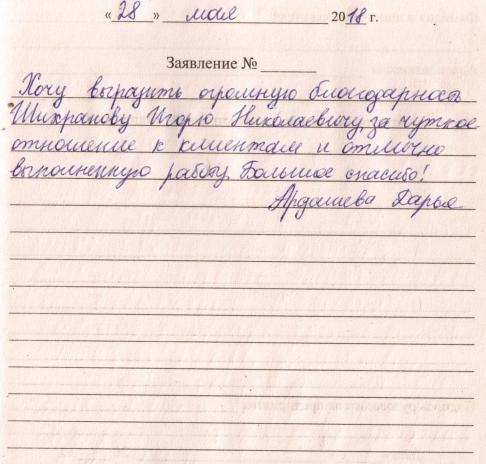 « 28 » мая 2018 г.
Заявление №
Хочу выразить огромную благодарность
Шихранову Игорю Николаевичу, за чуткое
отношение к клиентам и отлично
выполненную работу. Большое спасибо!
Ардашева Дарья